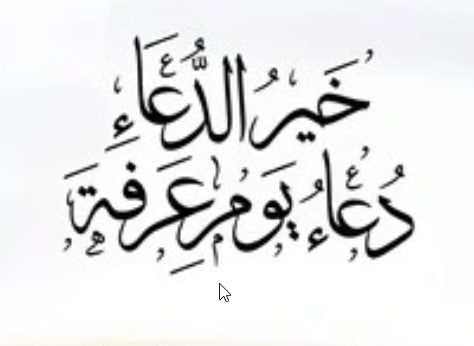 خَيْرُ الدُّعَاءِ
دُعَاءُ يَوْمِ عَرَفَةَ